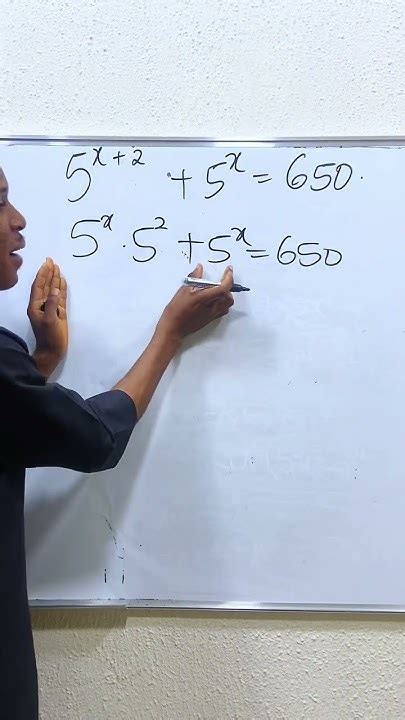 5^{x+2} + 5^x = 650.
5^x . 5^2 + 5^x = 650